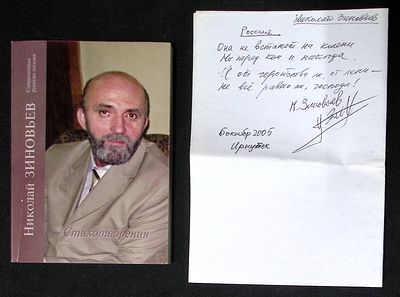 Николай ЗИНОВЬЕВ
Современная
русская поэзия
Стихотворения
Николай Зиновьев
Россия
Она не встанет на колени
Ни перед кем и никогда.
А от геройства ли, от лени –
не всё равно ли, господа!
Н. Зиновьев
Октябрь 2005
Иркутск